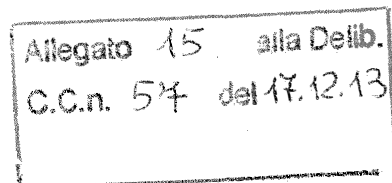 Allegato 15 alla Delib.
C.C.n. 57 del 17.12.13